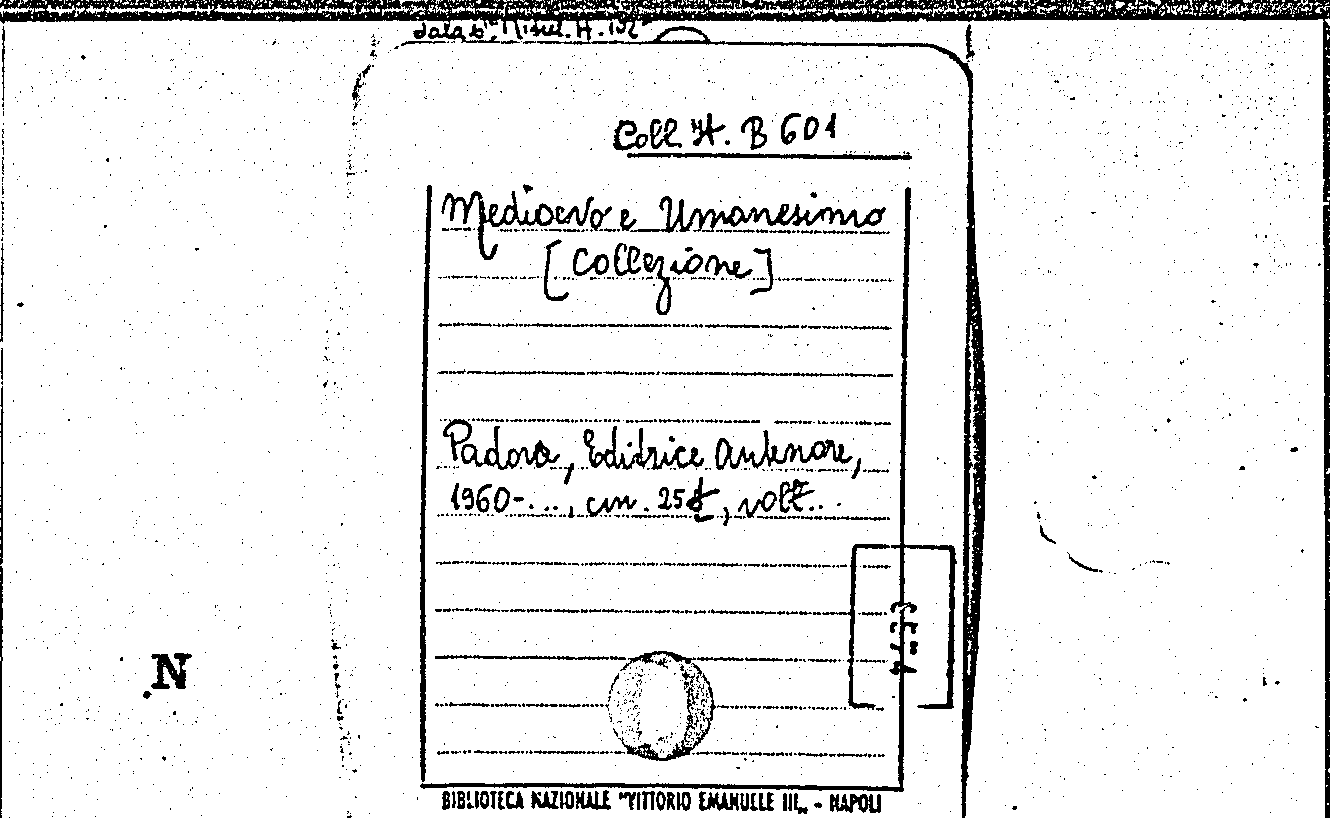 Coll. It. B 601
Medioevo e Umanesimo
[Collezione]
Padova, Editrice Antenore,
1960-..., cm. 25½, voll...
N
BIBLIOTECA NAZIONALE "VITTORIO EMANUELE III" - NAPOLI